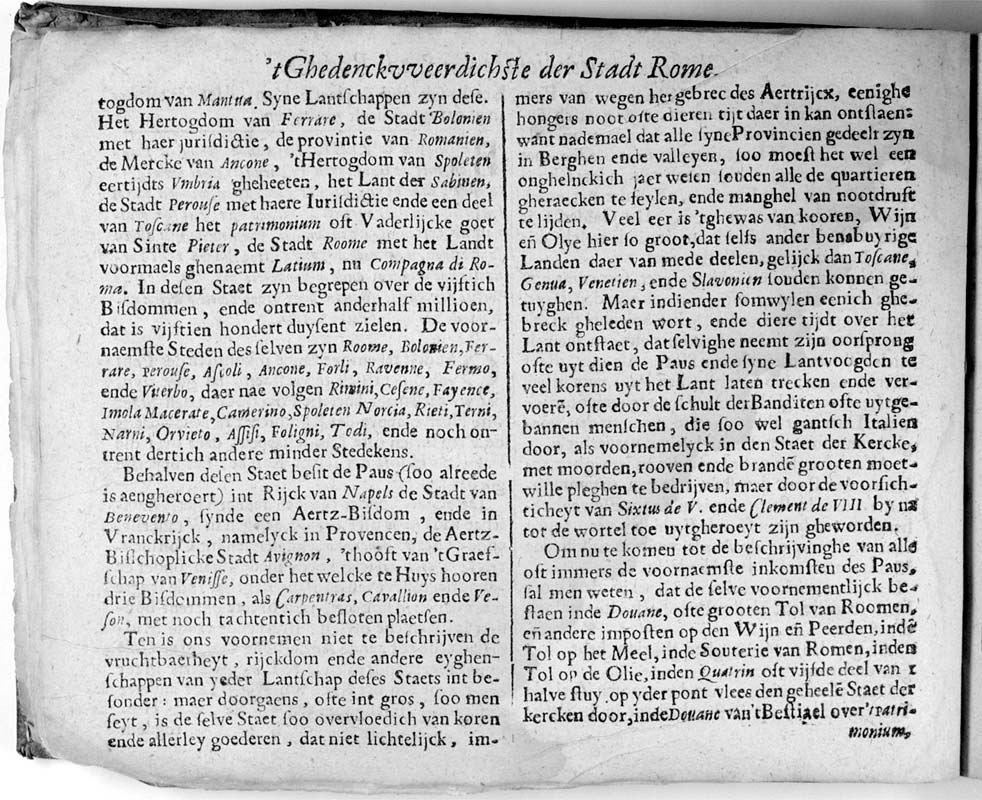 'tGhedenckvveerdichste der Stadt Rome.
togdom van Mantua. Syne Lantschappen zyn dese.
Het Hertogdom van Ferrare, de Stadt Bolonien
met haer jurisdictie, de provintie van Romanien,
de Mercke van Ancone, 'tHertogdom van Spoleten
eertijdts Vmbria gheheeten, het Lant der Sabinen,
de Stadt Perouse met haere Iurisdictie ende een deel
van Toscane het patrimonium oft Vaderlijcke goet
van Sinte Pieter, de Stadt Roome met het Landt
voormaels ghenaemt Latium, nu Compagna di Ro-
ma. In desen Staet zyn begrepen over de vijftich
Bisdommen, ende ontrent anderhalf millioen,
dat is vijftien hondert duysent zielen. De voor-
naemste Steden des selven zyn Roome, Bolonien, Fer-
rare, Perouse, Ascoli, Ancone, Forli, Ravenne, Fermo,
ende Viterbo, daer nae volgen Rimini, Cesene, Fayence,
Imola Macerate, Camerino, Spoleten Norcia, Rieti, Terni,
Narni, Orvieto, Assisi, Foligni, Todi, ende noch on-
trent dertich andere minder Stedekens.
Behalven desen Staet besit de Paus (soo alreede
is aengheroert) int Rijck van Napels de Stadt van
Benevento, synde een Aertz-Bisdom, ende in
Vranckrijck, namelyck in Provencen, de Aertz-
Bisschoplicke Stadt Avignon, 'thooft van 'tGraef-
schap van Venisse, onder het welcke te Huys hooren
drie Bisdommen, als Carpentras, Cavallion ende Ve-
son, met noch tachtentich besloten plaetsen.
Ten is ons voornemen niet te beschrijven de
vruchtbaerheyt, rijckdom ende andere eyghen-
schappen van yeder Lantschap deses Staets int be-
sonder: maer doorgaens, ofte int gros, soo men
seyt, is de selve Staet soo overvloedich van koren
ende allerley goederen, dat niet lichtelijck, im-
mers van wegen het gebrec des Aertrijcx, eenighe
hongers noot ofte dieren tijt daer in kan ontstaen:
want nademael dat alle syne Provincien gedeelt zyn
in Berghen ende valleyen, soo moest het wel een
onghelnckich jaer wesen souden alle de quartieren
gheraecken te feylen, ende manghel van nootdruft
te lijden. Veel eer is 'tghewas van kooren, Wijn
eñ Olye hier so groot, dat selfs ander benabuyrige
Landen daer van mede deelen, gelijck dan Toscane,
Genua, Venetien, ende Slavonien souden konnen ge-
tuyghen. Maer indiender somwylen eenich ghe-
breck gheleden wort, ende diere tijdt over het
Lant ontstaet, dat selvighe neemt zijn oorsprong
ofte uyt dien de Paus ende syne Lantvoogden te
veel korens uyt het Lant laten trecken ende ver-
voerē, ofte door de schult der Banditen ofte uytge-
bannen menschen, die soo wel gantsch Italien
door, als voornemelyck in den Staet der Kercke,
met moorden, rooven ende brandē grooten moet-
wille pleghen te bedrijven, maer door de voorsich-
ticheyt van Sixtus de V. ende Clement de VIII by na
tot de wortel toe uytgheroeyt zijn gheworden.
Om nu te komen tot de beschrijvinghe van alle
oft immers de voornaemste inkomsten des Paus,
sal men weten, dat de selve voornementlijck be-
staen inde Douane, ofte grooten Tol van Roomen,
eñ andere imposten op den Wijn eñ Peerden, indē
Tol op het Meel, inde Souterie van Romen, inden
Tol op de Olie, inden Quatrin oft vijfde deel van
halve stuy. op yder pont vlees den geheelē Staet der
kercken door, inde Douane van 'tBestiael over 'tpatri-
monium,